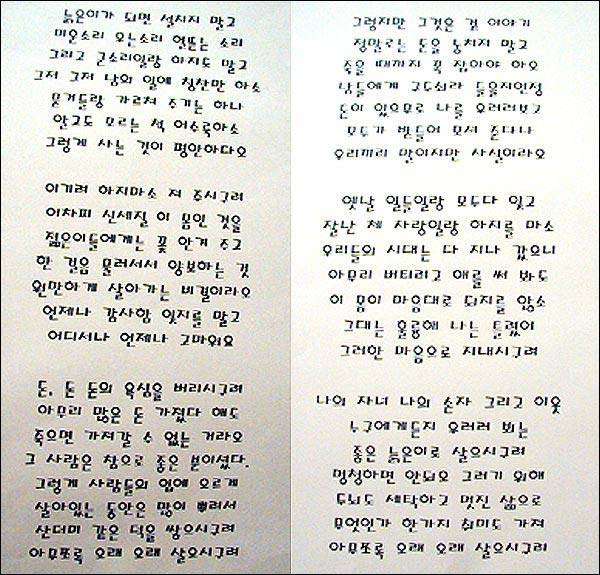 늙은이가 되면 설치지 말고
미운소리 우는소리 헐뜯는 소리
그리고 군소리일랑 하지도 말고
그저 그저 남의 일에 칭찬만 하소
묻거들랑 가르쳐 주기는 하나
알고도 모르는 척 어수룩하소
그렇게 사는 것이 평안하다오
이기려 하지마소 져 주시구려
이차피 신세질 이 몸인 것을
젊은이들에게는 꽃 안겨 주고
한 걸음 물러서서 양보하는 것
원만하게 살아가는 비결이라오
언제나 감사함 잊지를 말고
어디서나 언제나 고마워요
돈, 돈 돈의 욕심을 버리시구려
아무리 많은 돈 가졌다 해도
죽으면 가져갈 수 없는 거라오
그 사람은 참으로 좋은 분이셨다.
그렇게 사람들의 입에 오르게
살아있는 동안은 많이 뿌려서
산더미 같은 덕을 쌓으시구려
아무쪼록 오래 오래 살으시구려
그렇지만 그것은 겉 이야기
정말로는 돈을 놓치지 말고
죽을 때까지 꼭 잡아야 하오
남들에게 구두쇠라 들을지언정
돈이 있으므로 나를 우러러보고
모두가 받들어 모셔 준다나
우리끼리 말이지만 사실이라오
옛날 일들일랑 모두다 잊고
잘난 체 자랑일랑 하지를 마소
우리들의 시대는 다 지나 갔으니
아무리 버티려고 애를 써 봐도
이 몸이 마음대로 되지를 않소
그대는 훌륭해 나는 틀렸어
그러한 마음으로 지내시구려
나의 자녀 나의 손자 그리고 이웃
누구에게든지 우러러 뵈는
좋은 늙은이로 살으시구려
멍청하면 안되오 그러기 위해
두뇌도 세탁하고 멋진 삶으로
무엇인가 한가지 취미도 가져
아무쪼록 오래 오래 살으시구려